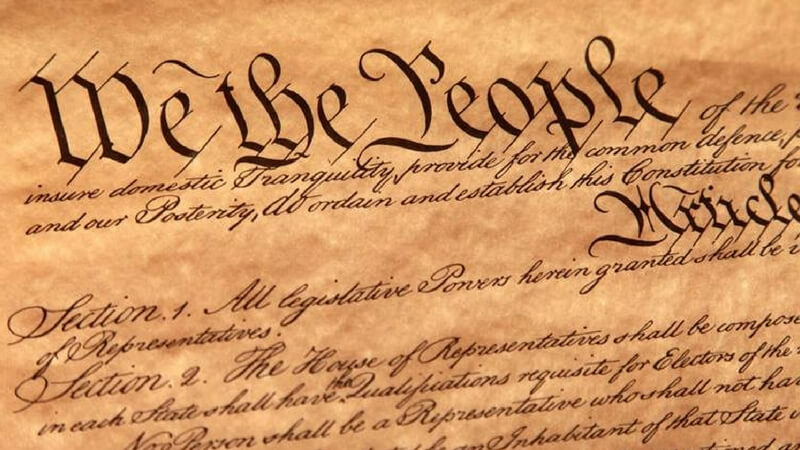 We the People of the
insure domestic Tranquility, provide for the common defence,
and our Posterity, do ordain and establish this Constitution for
Article
Section. 1. All legislative Powers herein granted shall be
of Representatives.
Section. 2. The House of Representatives shall be compose
in each State shall have the Qualifications requisite for Electors of the
No Person shall be a Representative who shall not have
an Inhabitant of that State